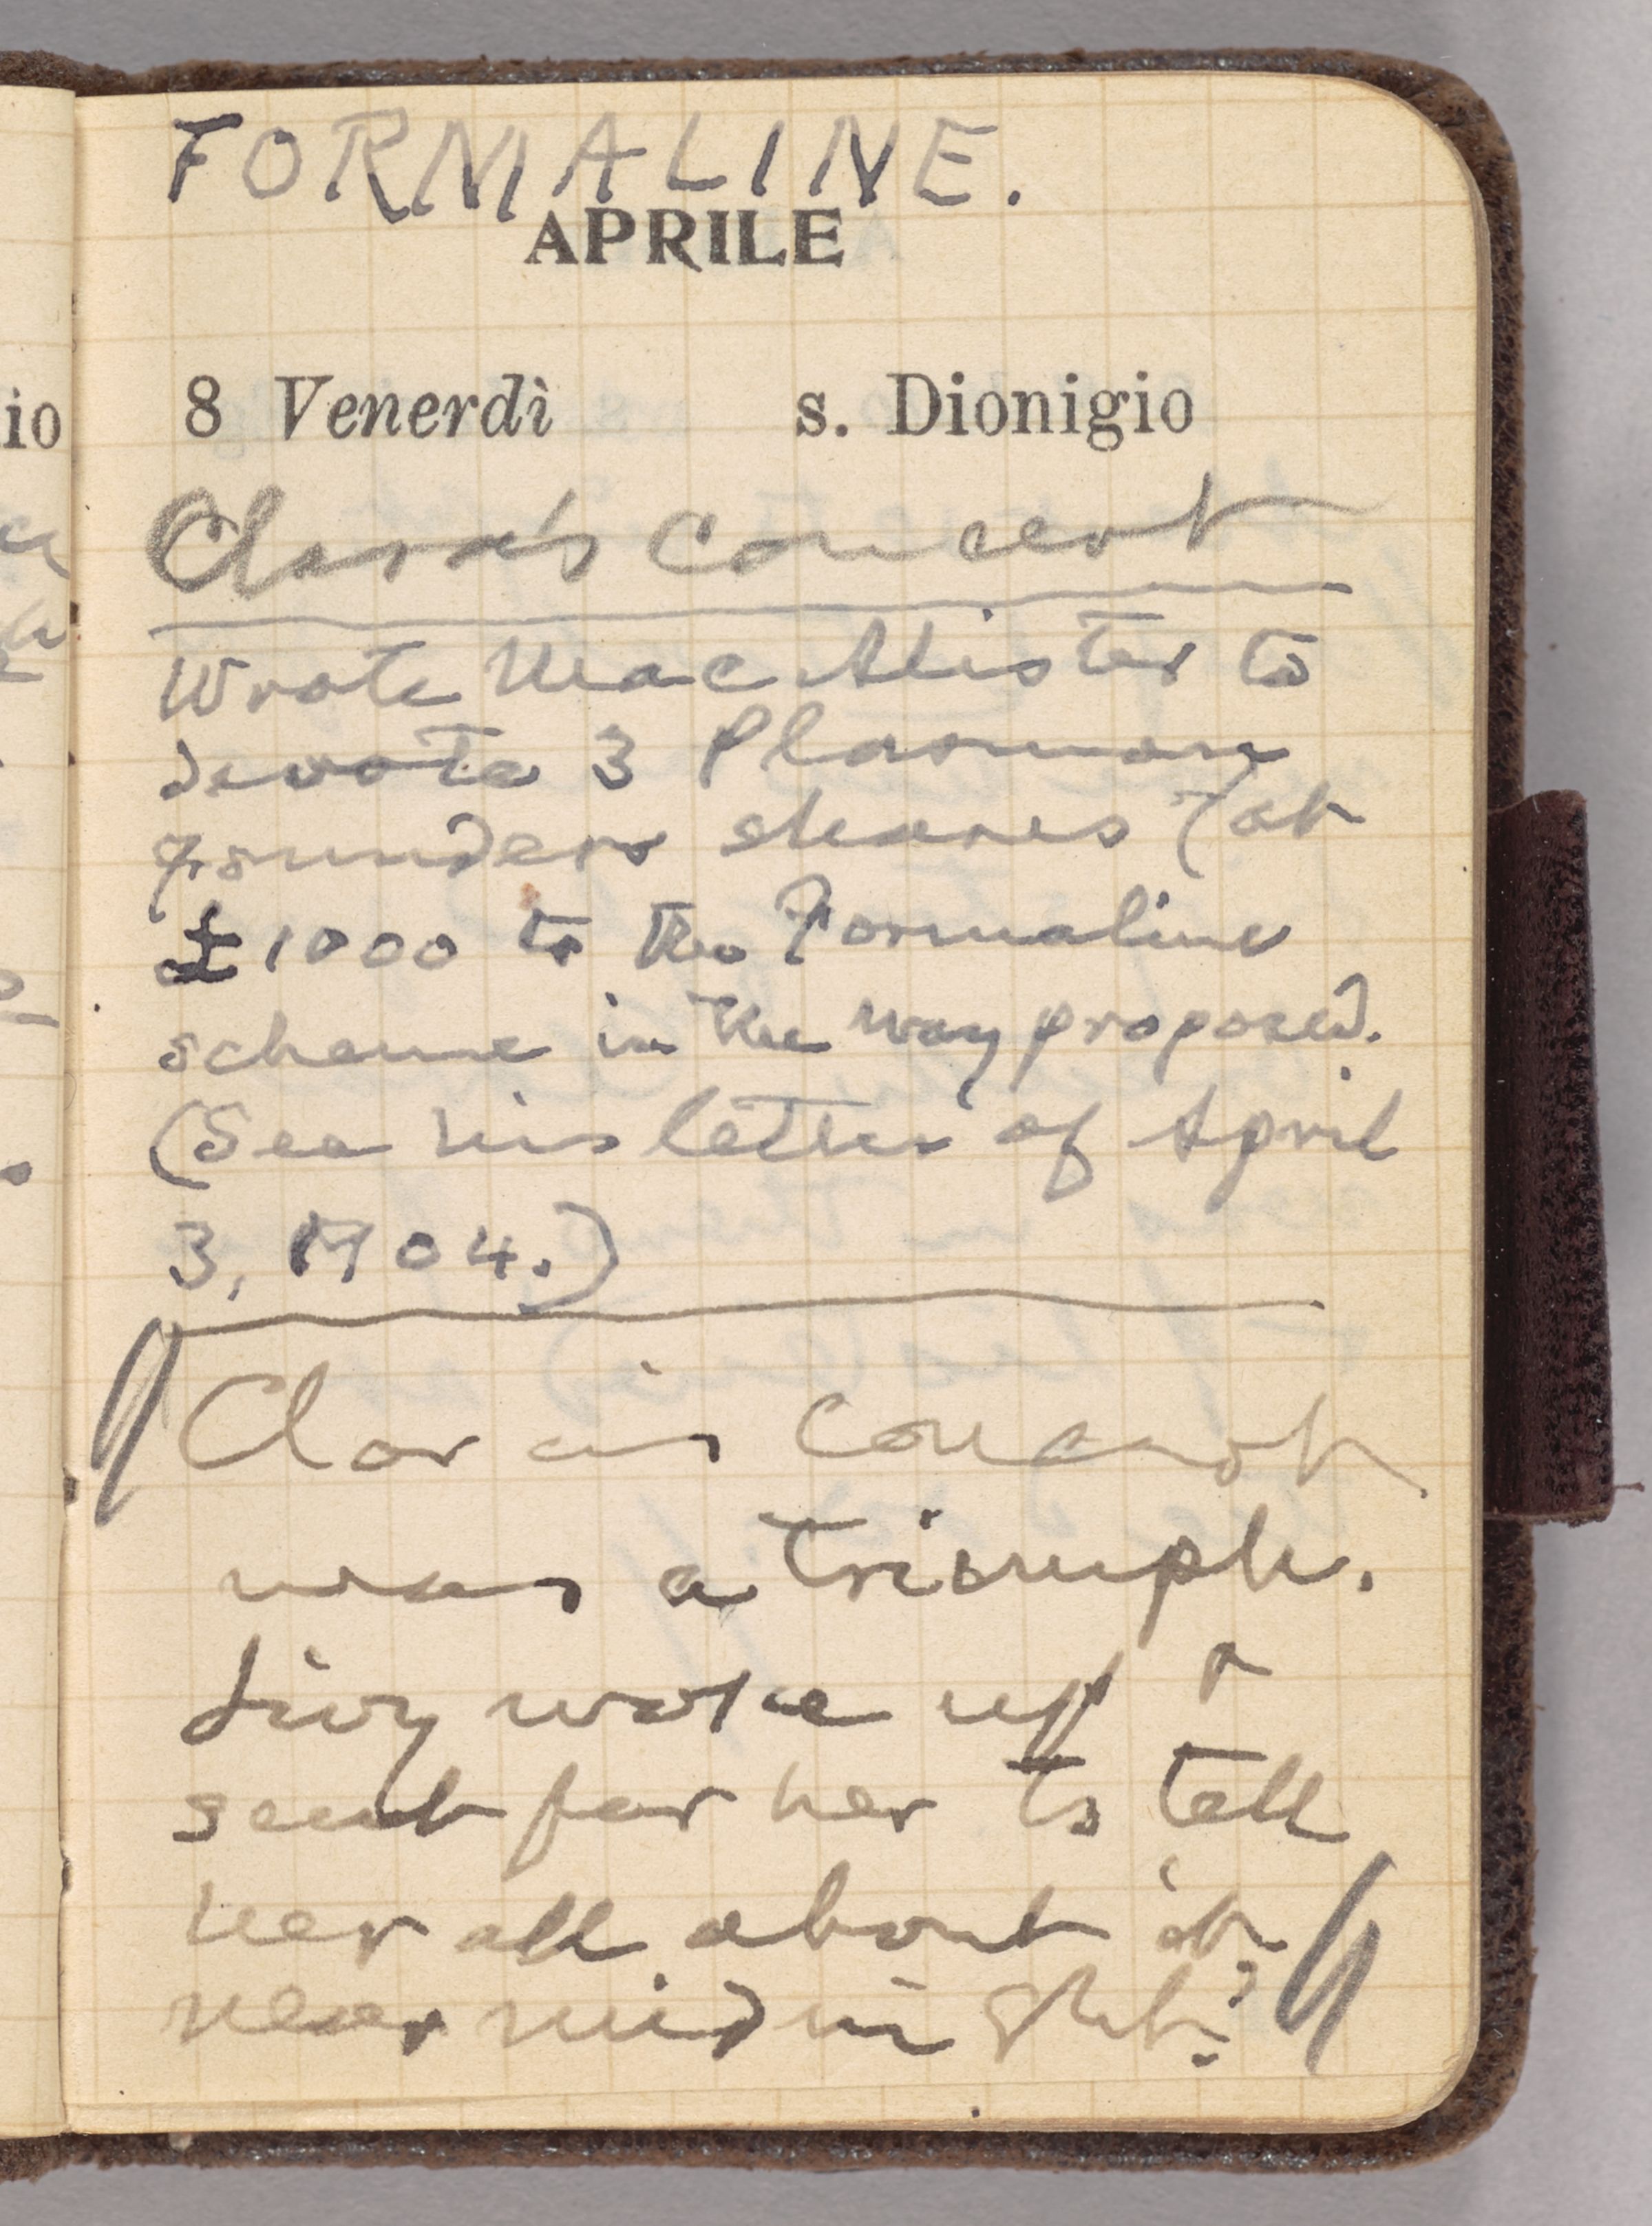 FORMALINE.
APRILE
io 8 Venerdì s. Dionigio
Clara's Concert
Wrote MacAlister to
devote 3 Plasmon
founders shares (at
£1000 to the Formaline
scheme in the way proposed.
(See his letter of April
3, 1904.)
Clara's Concert
was a triumph.
Livy woke up &
sent for her to tell
her all about it,
near midnight.